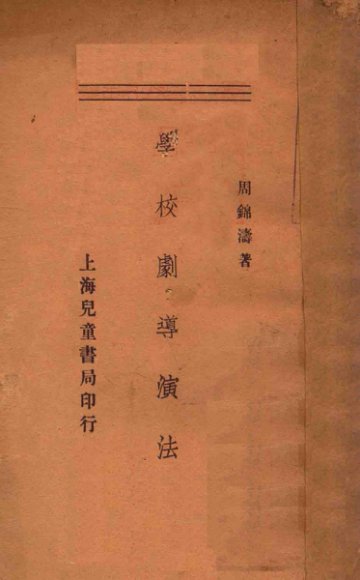 周錦濤著
學校劇導演法
上海兒童書局印行